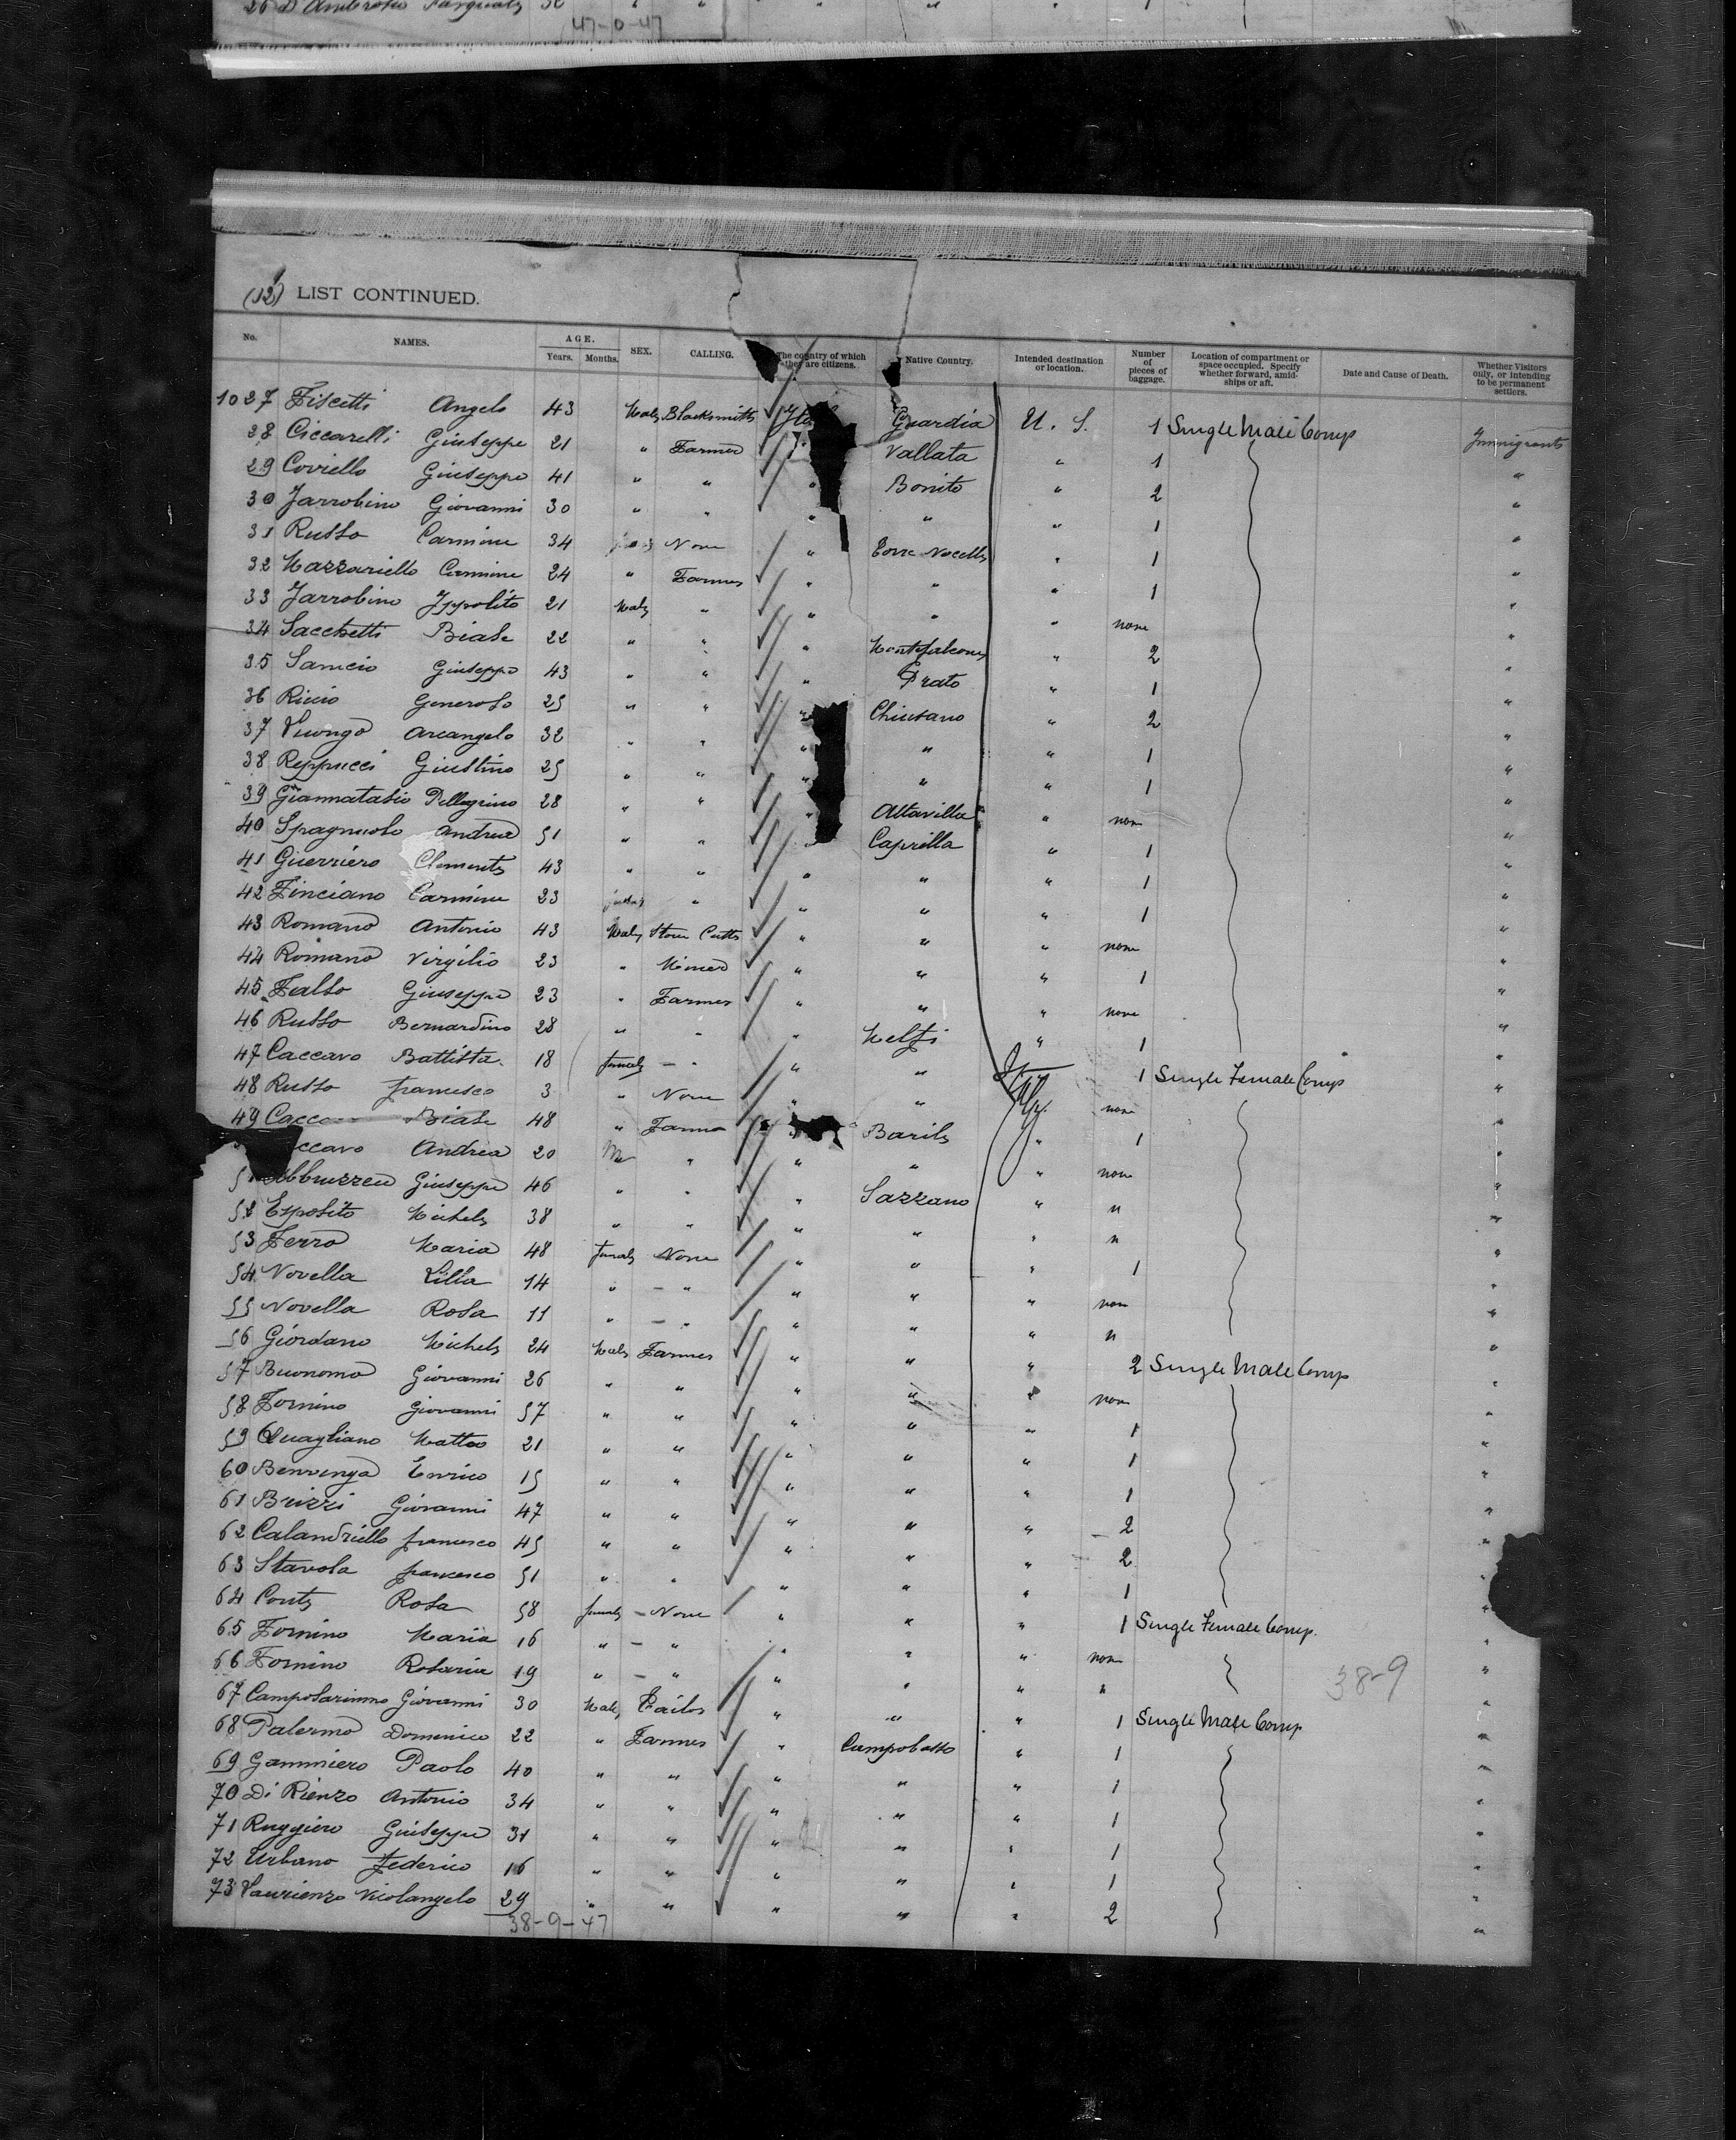 26 D'Ambrosio Pasquale
47-0-47
(12) LIST CONTINUED.
No. NAMES. AGE. Years. Months. SEX. CALLING. The country of which they are citizens. Native Country. Intended destination or location. Number of pieces of baggage. Location of compartment or space occupied. Specify whether forward, amidships or aft. Date and Cause of Death. Whether Visitors only, or intending to be permanent settlers.
1027 Fiscetti Angelo 43 Male Blacksmith Guardia U. S. 1 Single Male Comp Immigrants
28 Ciccarelli Giuseppe 21 " Farmer Vallata " 1 "
29 Coviello Giuseppe 41 " " " Bonito " 2 "
30 Jarrobino Giovanni 30 " " " " " 1 "
31 Russo Carmine 34 None " Torre Nocelle " 1 "
32 Mazzariello Carmine 24 " Farmer " " " 1 "
33 Jarrobino Ippolito 21 Male " " " " none "
34 Sacchetti Biase 22 " " " Montefalcone " 2 "
35 Giuseppe 43 " " " Prato " 1 "
36 Riccio Generoso 25 " " " Chiusano " 2 "
37 Arcangelo 32 " " " " " 1 "
38 Reppucci Giustino 25 " " " " " 1 "
39 Giannatasio Pellegrino 28 " " " Altavilla " none "
40 Spagnuolo Andrea 51 " " " Caprilla " 1 "
41 Guerriero Clemente 43 " " " " " 1 "
42 Finciano Carmine 23 " " " " 1 "
43 Romano Antonio 43 Male Stone Cutter " " " none "
44 Romano Virgilio 23 " Miner " " " 1 "
45 Falso Giuseppe 23 " Farmer " " " none "
46 Russo Bernardino 28 " " " Melfi " 1 "
47 Caccavo Battista 18 female - " " " 1 Single Female Comp "
48 Russo francesco 3 " None " " none "
49 Biase 48 " Farmer Barile " 1 "
Andrea 20 M " " " " none "
51 Abbruzzese Giuseppe 46 " " " Sazzano " " "
52 Esposito Michele 38 " " " " " " "
53 Ferro Maria 48 female None " " " 1 "
54 Novella Lilla 14 " - " " " " none "
55 Novella Rosa 11 " - " " " " " "
56 Giordano Michele 24 Male Farmer " " " 2 Single Male Comp "
57 Buonomo Giovanni 26 " " " " " none "
58 Fornino Giovanni 57 " " " " " 1 "
59 Quagliano Matteo 21 " " " " " 1 "
60 Benvenga Enrico 15 " " " " " 1 "
61 Brizzi Giovanni 47 " " " " " 2 "
62 Calandriello francesco 45 " " " " " 2 "
63 Stavola francesco 51 " " " " " 1 "
64 Conte Rosa 58 female - None " " " 1 Single Female Comp. "
65 Fornino Maria 16 " - " " " " none "
66 Fornino Rosaria 19 " - " " " " " "
38-9
67 Camposarinno Giovanni 30 Male Tailor " " " 1 Single Male Comp "
68 Palermo Domenico 22 " Farmer " Campobasso " 1 "
69 Gammiero Paolo 40 " " " " " 1 "
70 Di Rienzo Antonio 34 " " " " " 1 "
71 Ruggiero Giuseppe 31 " " " " " 1 "
72 Urbano federico 16 " " " " " 1 "
73 Vaurienzo Nicolangelo 29 " " " " " 2 "
38-9-47